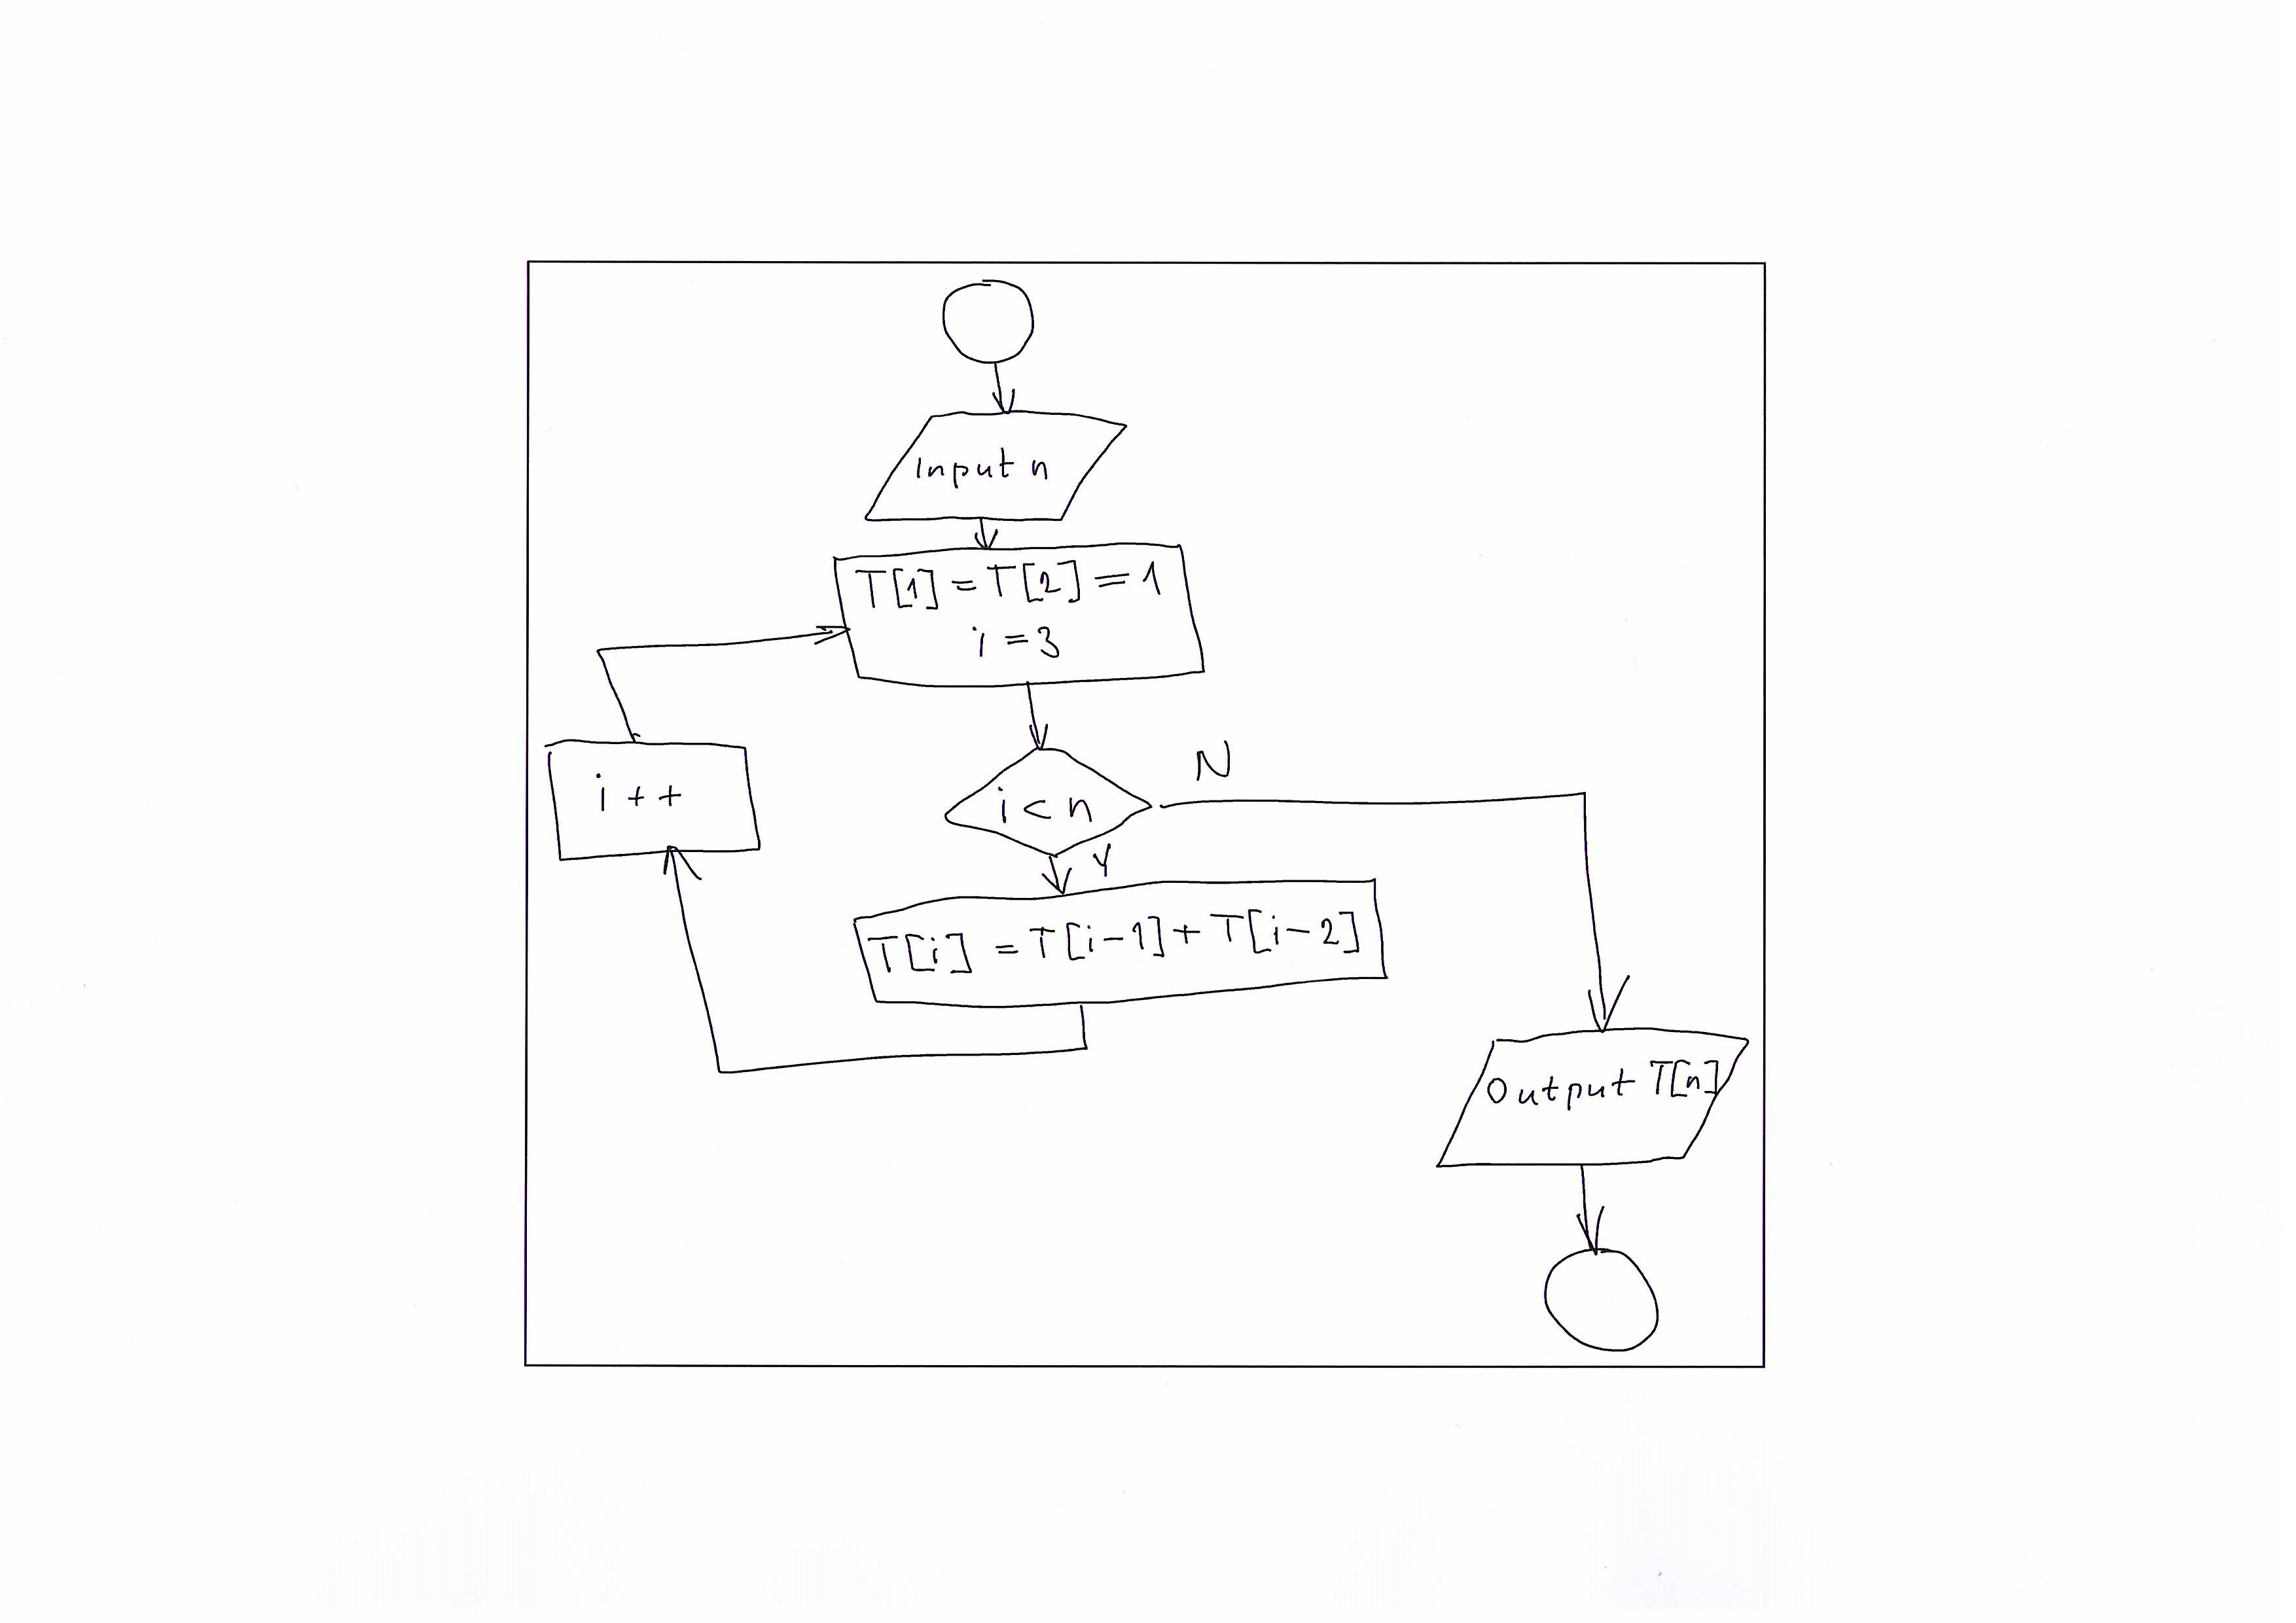 Input n
T[1] = T[2] = 1
i = 3
i < n
N
Y
i ++
T[i] = T[i-1] + T[i-2]
Output T[n]